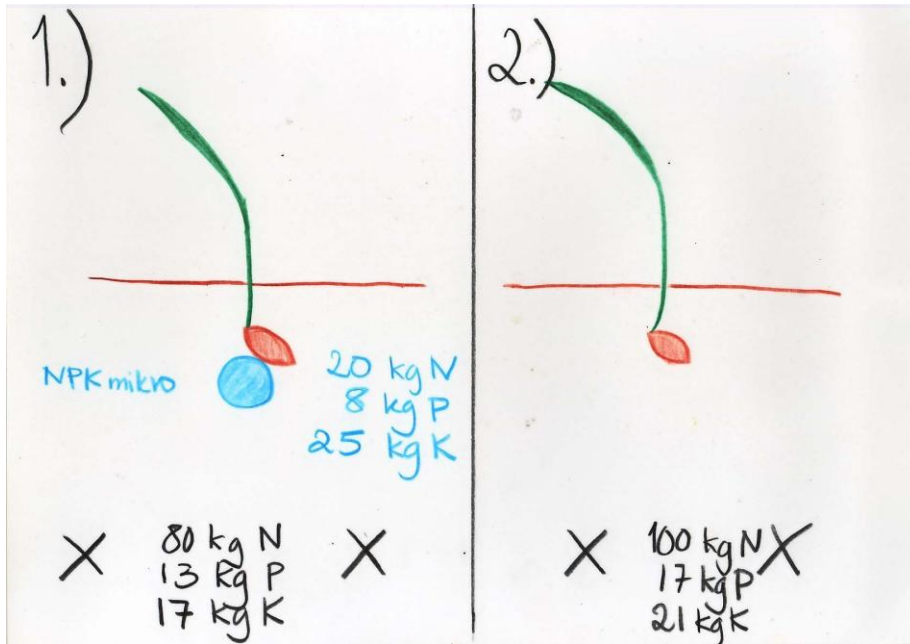 1.)
NPK mikro
20 kg N
8 kg P
25 kg K
X
80 kg N
13 kg P
17 kg K
X
2.)
X
100 kg N
17 kg P
21 kg K
X